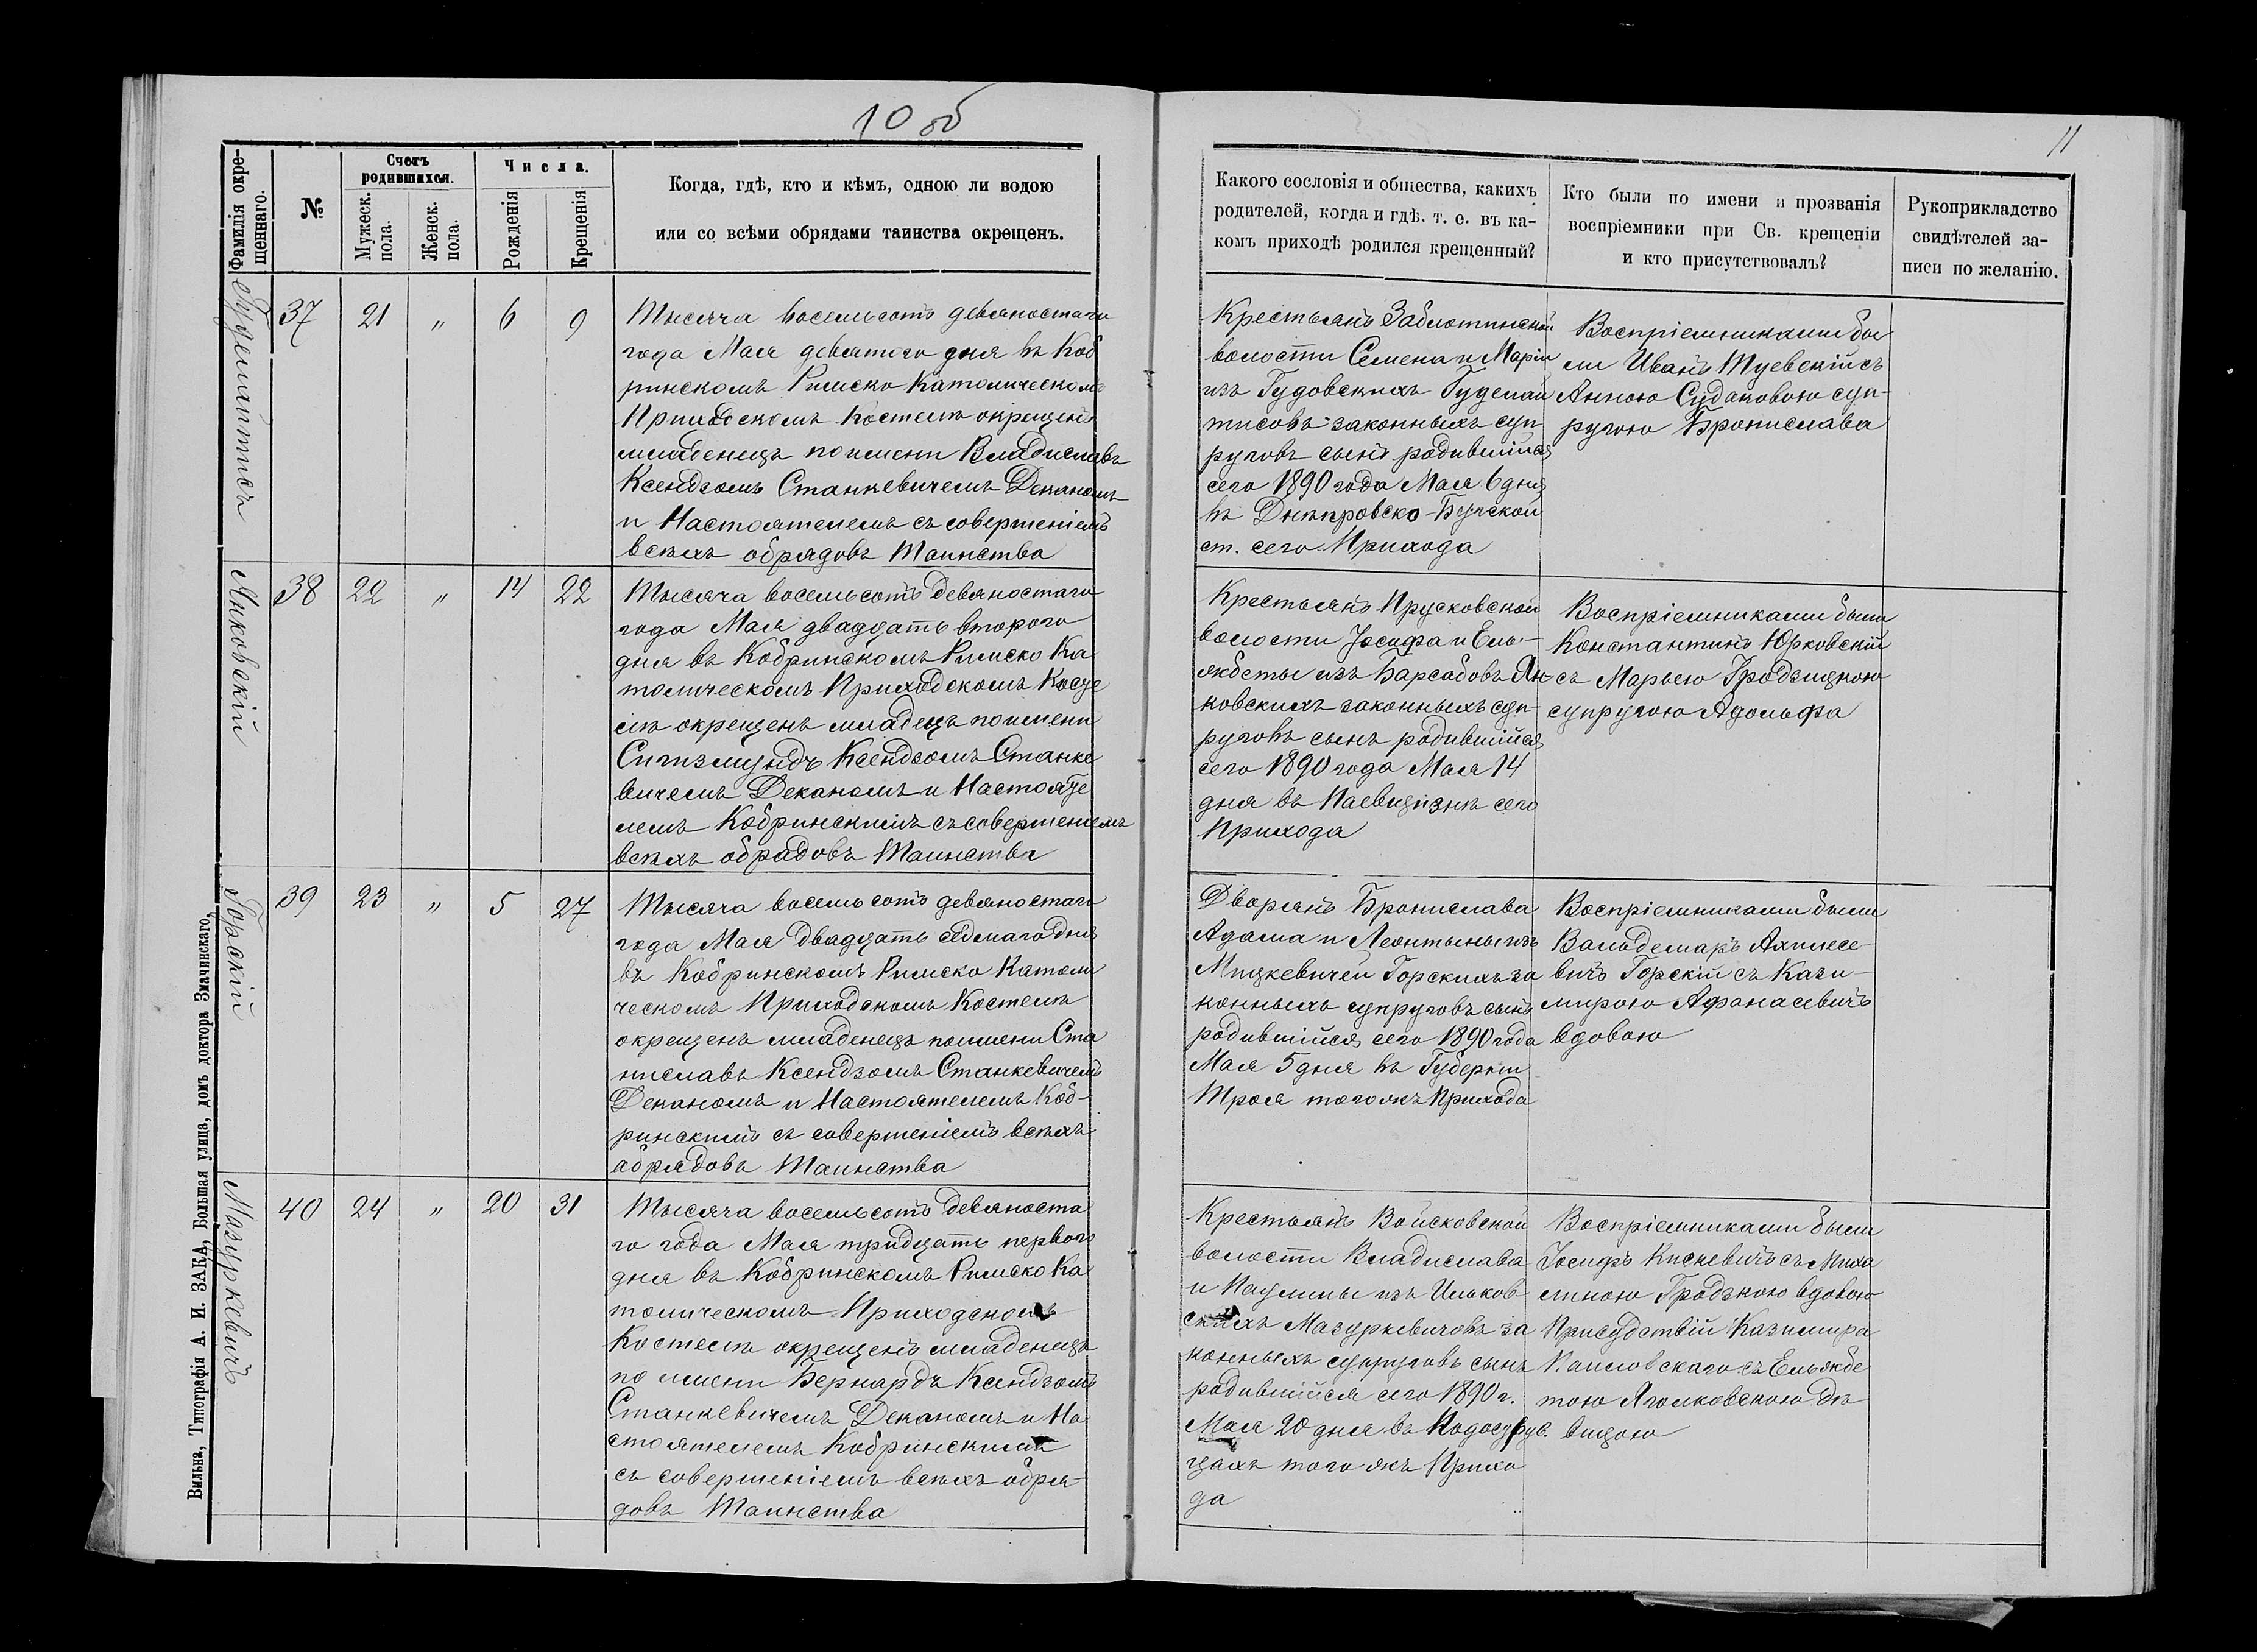 10 об
11
Фамилія окре-
щеннаго.
№
Счетъ
родившихся.
Мужеск.
пола.
Женск.
пола.
Числа.
Рожденія
Крещенія
Когда, гдѣ, кто и кѣмъ, одною ли водою
или со всѣми обрядами таинства окрещенъ.
Какого сословія и общества, какихъ
родителей, когда и гдѣ. т. е. въ ка-
комъ приходѣ родился крещенный?
Кто были по имени и прозванія
воспріемники при Св. крещеніи
и кто присутствовалъ?
Рукоприкладство
свидѣтелей за-
писи по желанію.
Гудемайтисъ
37 21 " 6 9
Тысяча восемьсотъ девяностаго
года Мая девятого дня въ Коб
ринскомъ Римско Католическомъ
Приходскомъ Костелѣ окрещенъ
младенецъ по имени Владиславъ
Ксендзомъ Станкевичемъ Деканомъ
и Настоятелемъ съ совершеніемъ
всѣхъ обрядовъ Таинства
Крестьянъ Заблотинской
волости Семена и Маріи
изъ Гудовскихъ Гудемай
тисовъ законныхъ суп
руговъ сынъ родившійся
сего 1890 года Мая 6 дня
въ Днѣпровско-Бугской
ст. сего Прихода
Воспріемниками бы
ли Иванъ Туевскій съ
Анною Судаковою суп-
ругою Бронислава
Янковскій
38 22 " 14 22
Тысяча восемьсотъ девяностаго
года Мая двадцать второго
дня въ Кобринскомъ Римско Ка
толическомъ Приходскомъ Косте
лѣ окрещенъ младецъ по имени
Сигизмундъ Ксендзомъ Станке
вичемъ Деканомъ и Настояте
лемъ Кобринскимъ съ совершеніемъ
всѣхъ обрадовъ Таинства
Крестьянъ Прусковской
волости Іосифа и Ель-
жбеты изъ Барсабовъ Ян-
ковскихъ законныхъ суп-
руговъ сынъ родившійся
сего 1890 года Мая 14
дня въ сего
Прихода
Воспріемниками были
Константинъ Юрковскій
съ Марьею Гродзицкою
супругою Адольфа
Горскій
39 23 " 5 27
Тысяча восемьсотъ девяностаго
года Мая двадцать седмаго дня
въ Кобринскомъ Римско Католи
ческомъ Приходскомъ Костелѣ
окрещенъ младенецъ по имени Ста
ниславъ Ксендзомъ Станкевичемъ
Деканомъ и Настоятелемъ Коб-
ринскимъ съ совершеніемъ всѣхъ
абрядовъ Таинства
Дворянъ Бронислава
Адама и Леонтыны изъ
Мицкевичей Горскихъ за
конныхъ супруговъ сынъ
родившійся сего 1890 года
Мая 5 дня въ Губерніи
тогожъ Прихода
Воспріемниками были
Вальдемаръ Ахилесе-
вичъ Горскій съ Кази-
мирою Афанасевичъ
вдовою
Мазуркевичъ
40 24 " 20 31
Тысяча восемьсотъ девяноста
го года Мая тридцать первого
дня въ Кобринскомъ Римско Ка
толическомъ Приходскомъ
Костелѣ окрещенъ младенецъ
по имени Бернардъ Ксендзомъ
Станкевичемъ Деканомъ и На
стоятелемъ Кобринскимъ
съ совершеніемъ всѣхъ обря-
довъ Таинства
Крестьянъ Войсковской
волости Владислава
и Паулины изъ Ильков
скихъ Мазуркевичовъ за
конныхъ супруговъ сынъ
родившійся сего 1890 г.
Мая 20 дня въ
цахъ того жъ Прихо
да
Воспріемниками были
Іосифъ Кискевичъ съ Миха
линою Гродзкою вдовою
Присудствіи Казимира
Каиловскаго съ Ельжбе
тою Яголковскою дѣ
вицою
Вильна, Типографія А. И. ЗАКА, Большая улица, домъ доктора Змачинскаго.